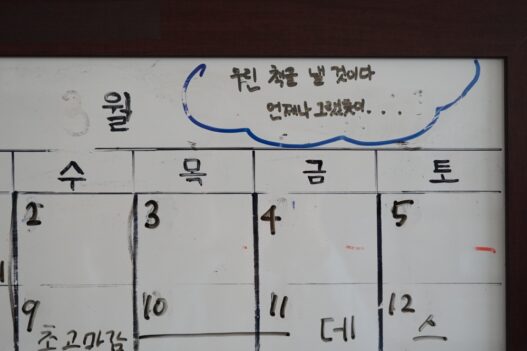 우린 책을 낼 것이다
언제나 그랬듯이...
3월
수 목 금 토
2 3 4 5
9 10 11 12
초고마감 데 스